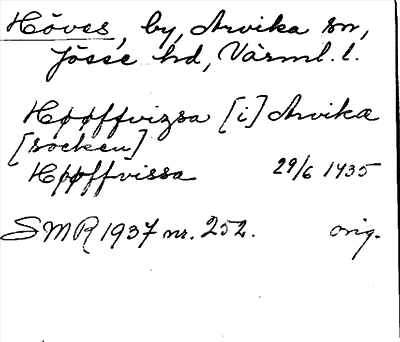 Höves, by, Arvika sn,
Jösse hd, Värml. l.
Høøffvizsa [i] Arvika
[socken]
Høøffvissa 29/6 1435
SMR 1937 nr. 252. orig.